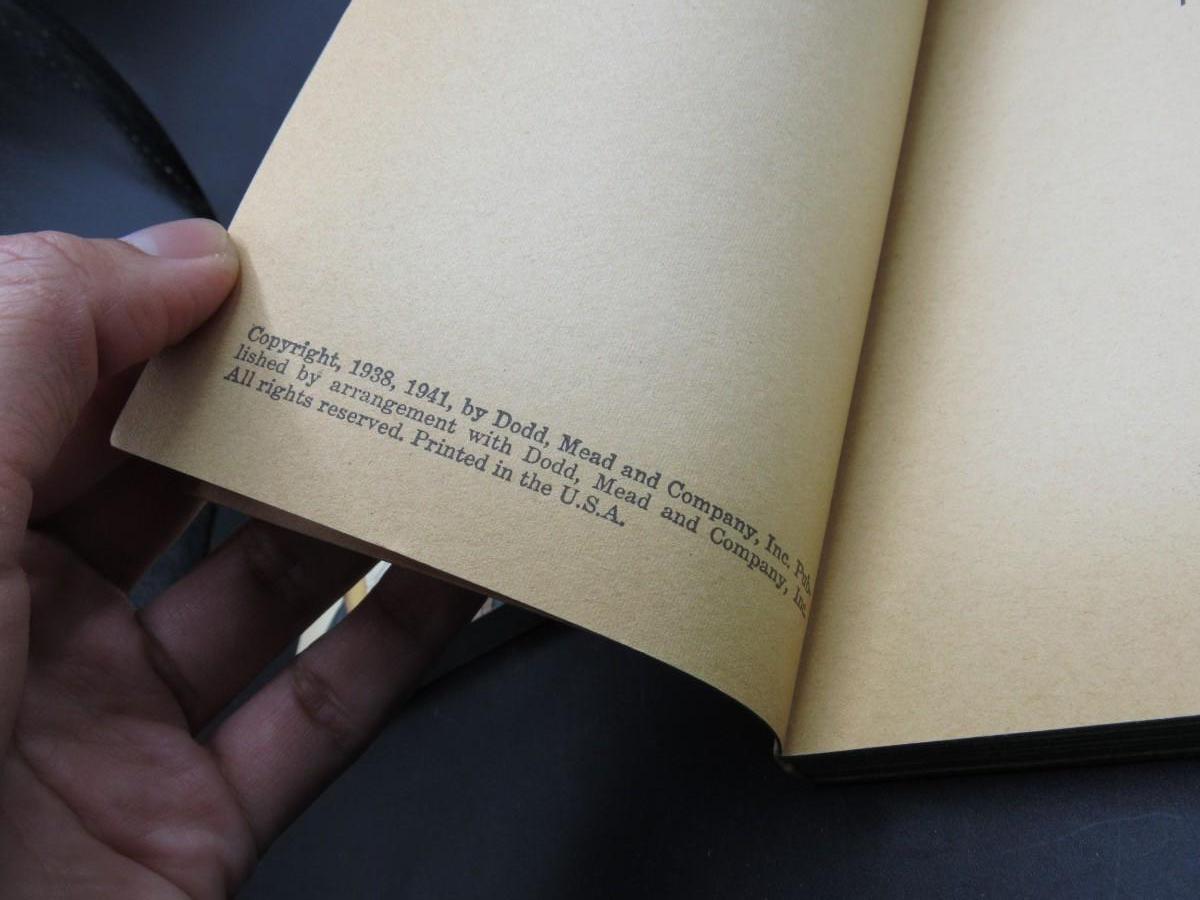 Copyright, 1938, 1941, by Dodd, Mead and Company, Inc. Pub-
lished by arrangement with Dodd, Mead and Company, Inc.
All rights reserved. Printed in the U.S.A.